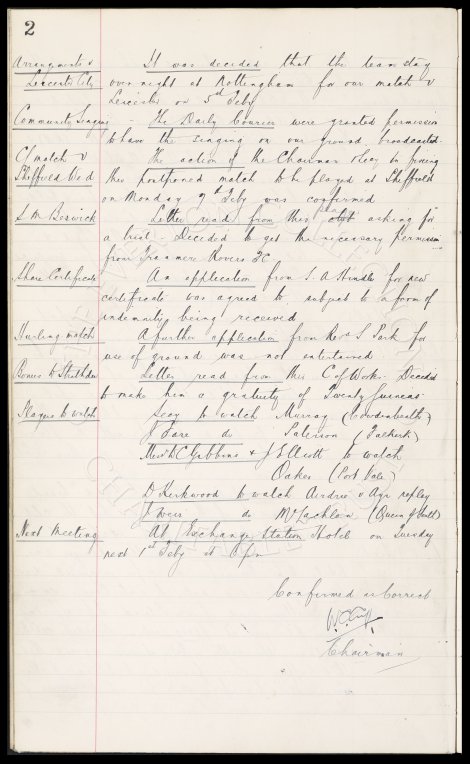 2
Arrangements v It was decided that the team stay
Leicester City over night at Nottingham for our match v
Leicester on 5th Feby
Community Singing - The Daily Courier were granted permission
to have the singing on our ground broadcasted.
C/match v The action of the Chairman & Secy in fixing
Sheffield Utd this postponed match to be played at Sheffield
on Monday 7th Feby was confirmed
S. M. Beswick Letter read from this asking for
a trial. Decided to get the necessary Permission
from Tranmere Rovers FC
Share Certificate An application from S. A. Hindle for new
certificate was agreed to, subject to a form of
indemnity being received
Hurling match A further application from Revd S Park for
use of ground was not entertained
Letter read from this C. of Works. Decided
to make him a gratuity of Twenty Guineas.
Players to watch Secy to watch Murray (Cowdenbeath)
J Fare do Paterson (Falkirk)
Messrs W C Gibbins & J Elliott to watch
Oakes (Port Vale)
D Kirkwood to watch Airdrie v Ayr replay
J Weir do McLachlan (Queen of South)
Next Meeting At Exchange Station Hotel on Tuesday
next 1st Feby at 6 pm.
Confirmed as Correct
Chairman